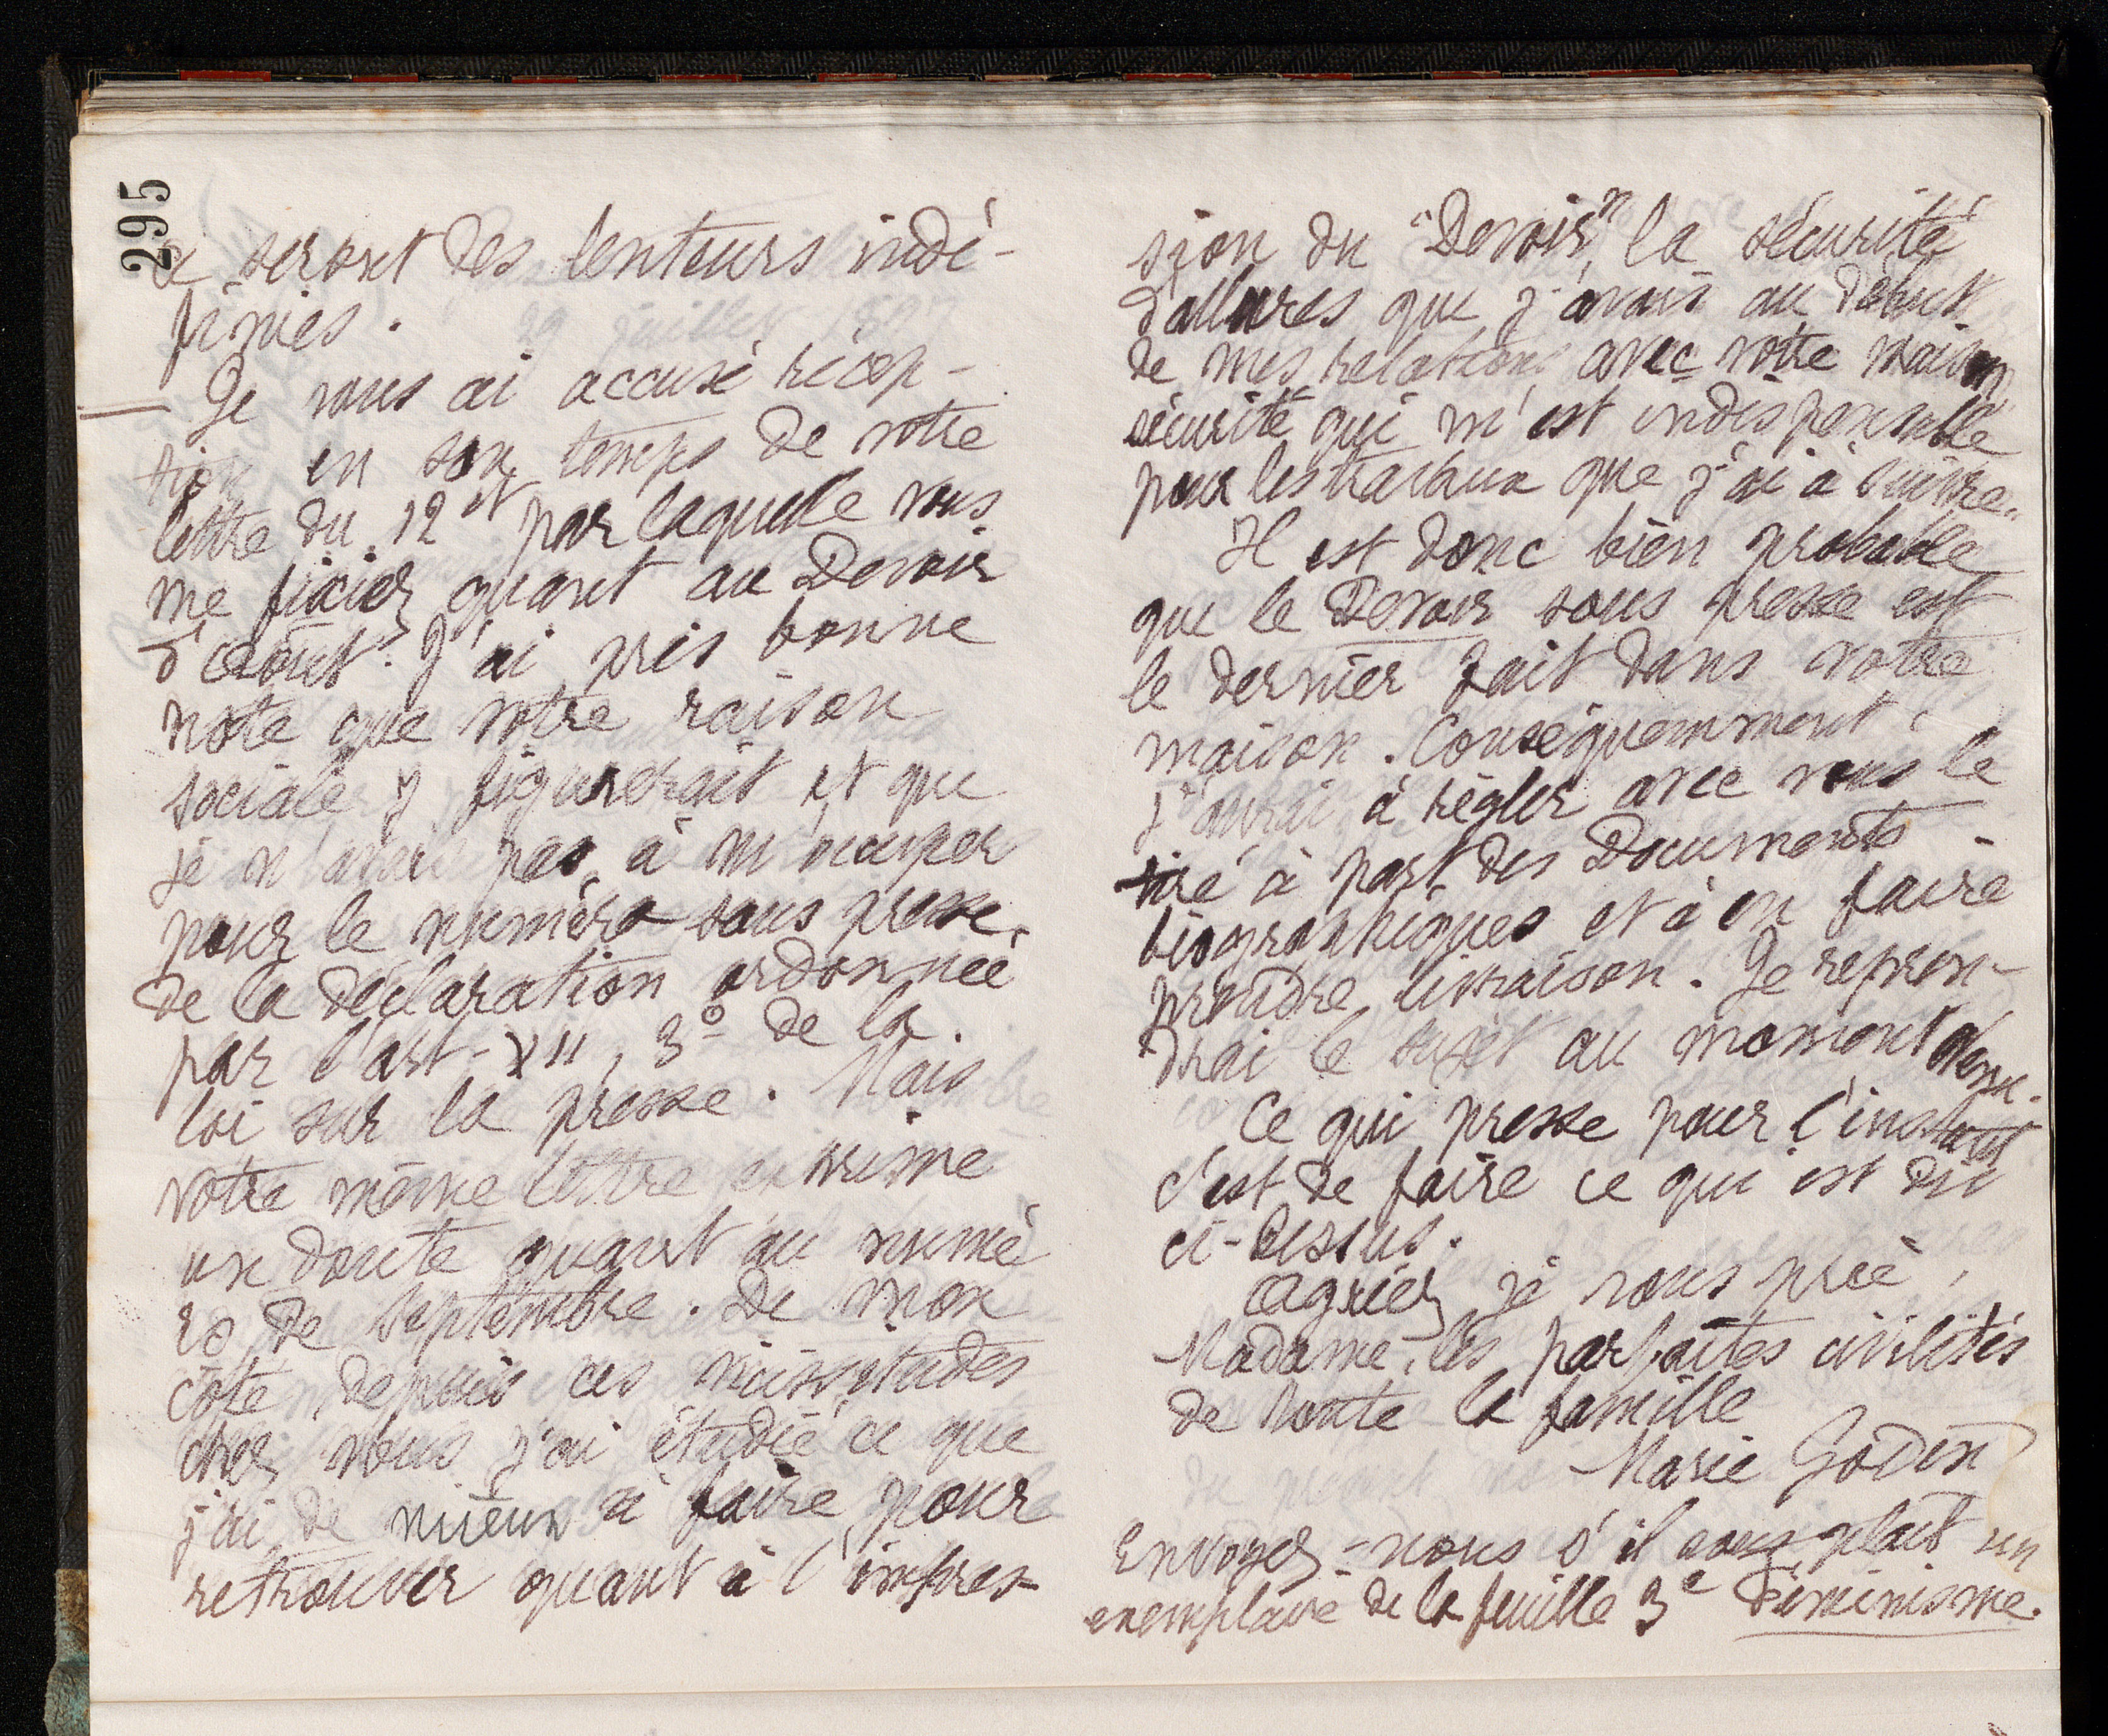 295
ce seront des lenteurs indé-
finies.
Je vous ai accusé récep-
tion en son temps de votre
lettre du 12 ct par laquelle vous
me fixiez quant au Devoir
d'Août. J'ai pris bonne
note que votre raison
sociale y figurerait et que
je n'avais pas à m'occuper
pour le numéro sous presse
de la déclaration ordonnée
par l'art. XII, 3° de la
loi sur la presse. Mais
votre même lettre exprime
un doute quant au numé
ro de septembre. De mon
côté, depuis ces vicissitudes
chez vous j'ai étudié ce que
j'ai de mieux à faire pour
retrouver quant à l'impres-
sion du "Devoir", la sécurité
d'allures que j'avais au début
de mes relations avec votre maison,
sécurité qui m'est indispensable
pour les travaux que j'ai à suivre.
Il est donc bien probable
que le Devoir sous presse est
le dernier fait dans votre
maison. Conséquemment,
j'aurai à régler avec vous le
tiré à part des Documents
biographiques et à en faire
prendre livraison. Je repren-
drai le sujet au moment
Ce qui presse pour l'instant
c'est de faire ce qui est dit
ci-dessus.
Agréez, je vous prie,
Madame, les parfaites civilités
de toute la famille
Marie Godin
Envoyez-nous s'il vous plaît un
exemplaire de la feuille 3e Féminisme.